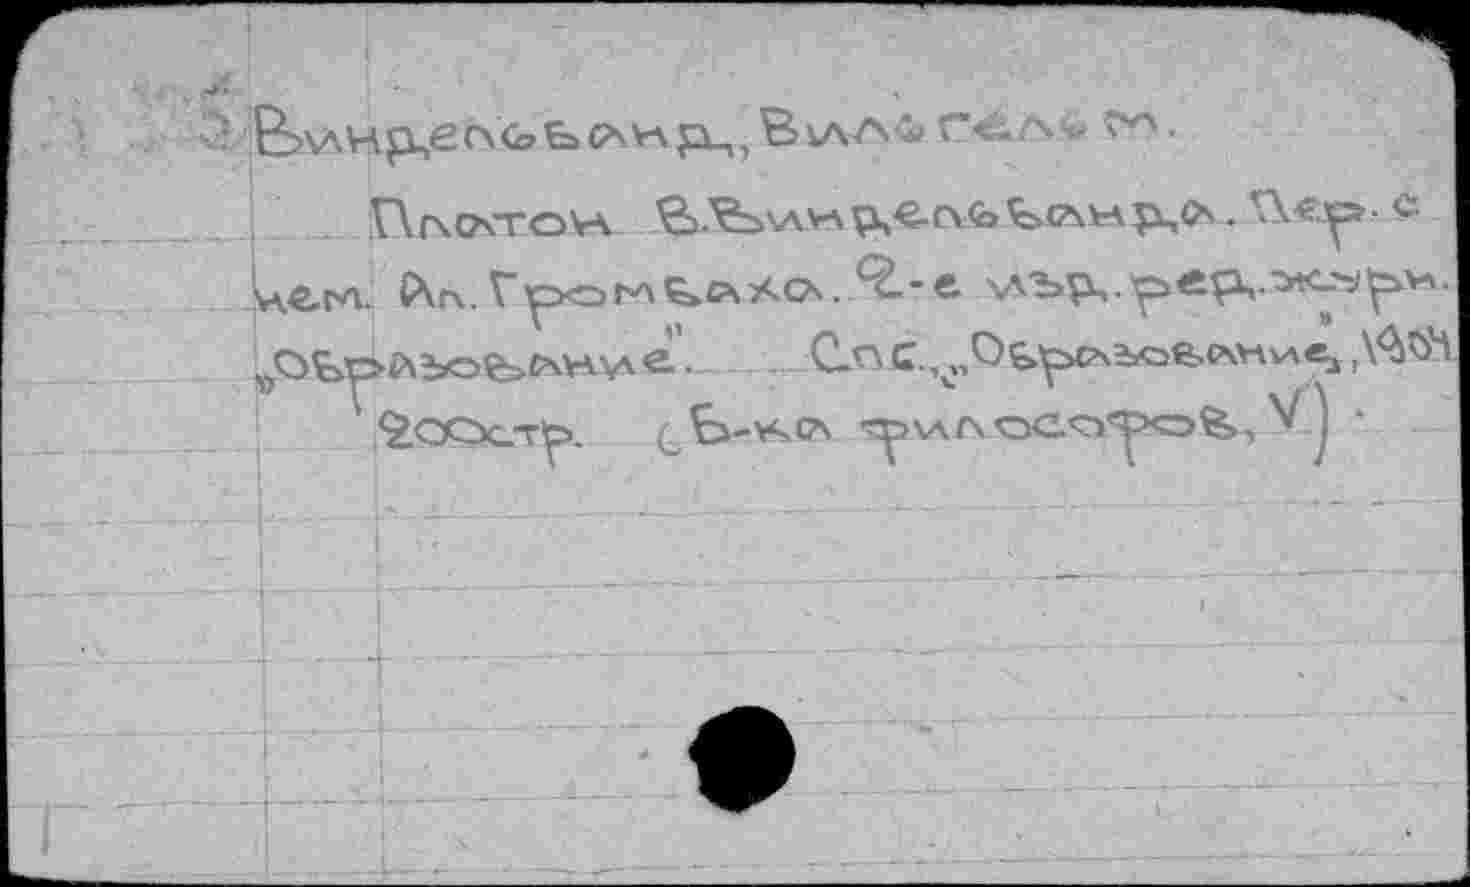 Виндельбанд, Вильгельм.
Платон В.Виндельбанда. Пер. с
нем. Ал. Громбаха. 2-е изд. ред. журн.
„Образование". Спб., „Образование", 1904.
200стр. (Б-ка философов, V)